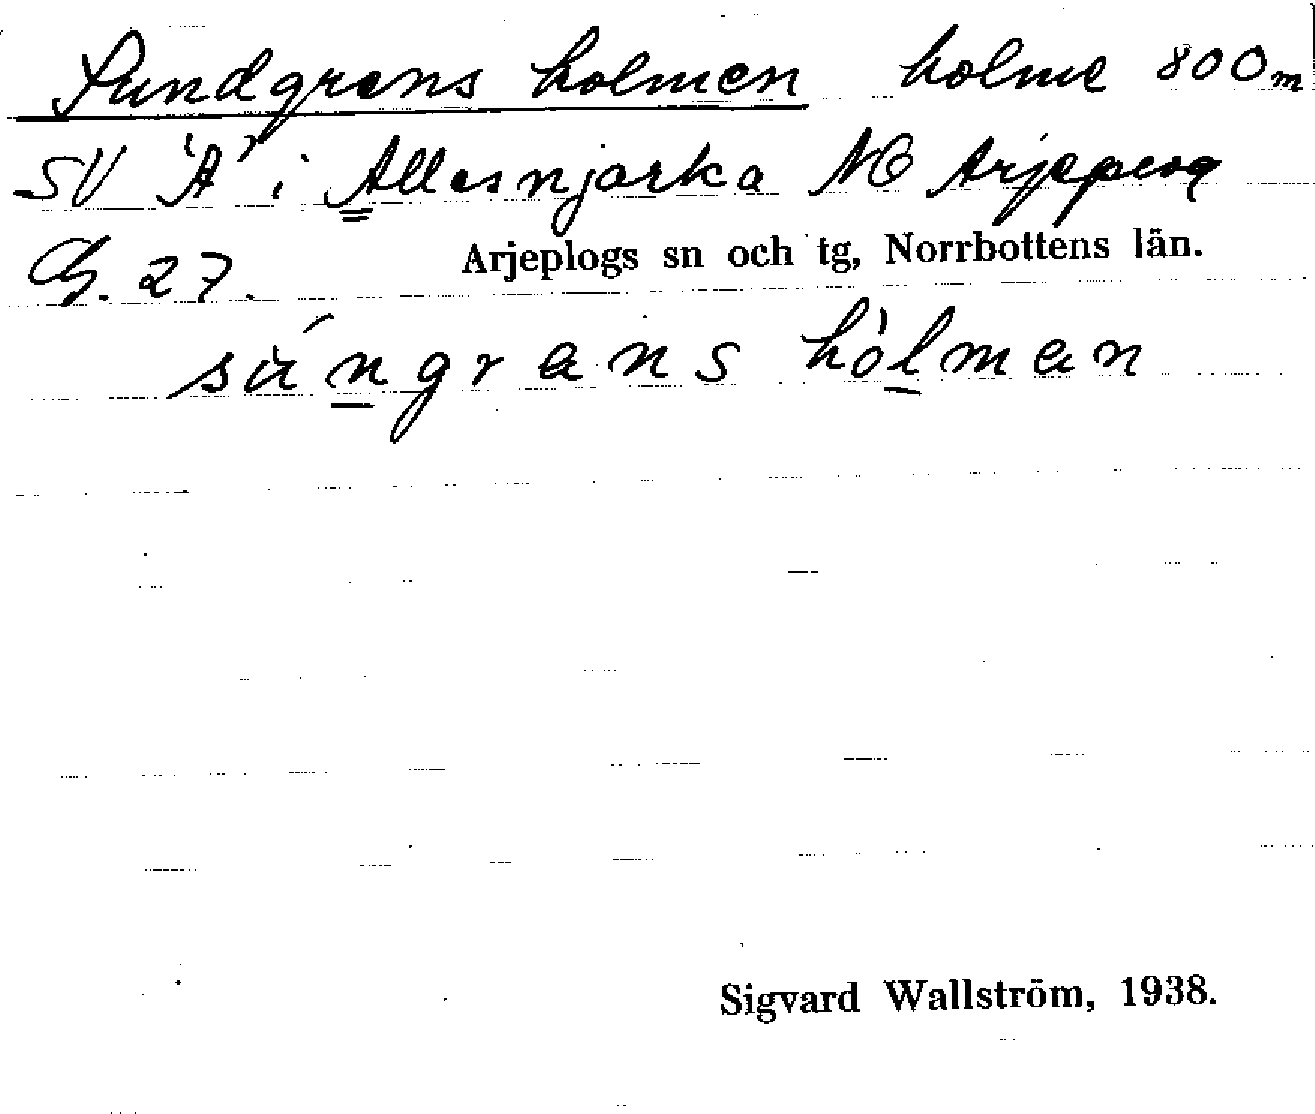 Sundgrens holmen holme 800 m
SV "A" i Allesnjarka NO Arjeplog
G. 27. Arjeplogs sn och tg, Norrbottens län.
súngrens hòlmen
Sigvard Wallström, 1938.